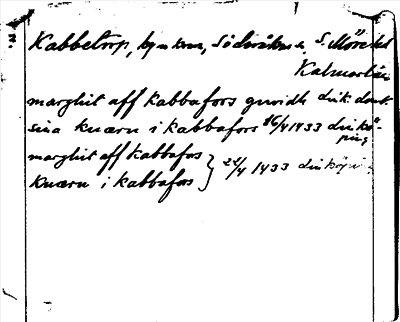 Kabbetorp, by u. krn, Söderåkra s, S. Möre hd
Kalmar län
marghit aff kabbafors gwidh
sina kuærn i kabbafors 16/4 1433 Linkö-
ping
marghit aff kabbafos
kuærn i kabbafos } 22/4 1433 Linköping